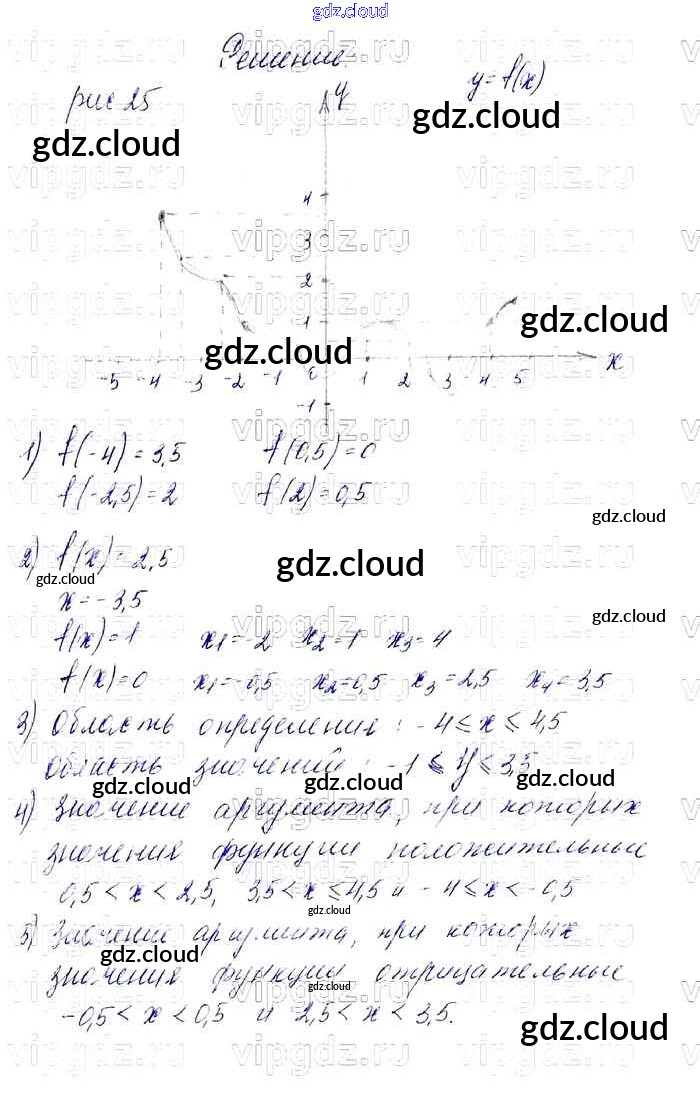 gdz.cloud
Решение
рис 25 y = f(x)
gdz.cloud gdz.cloud
vipgdz.ru
y
4
3
2
1
gdz.cloud gdz.cloud
-5 -4 -3 -2 -1 0 1 2 3 4 5 x
-1
1) f(-4) = 3,5 f(0,5) = 0
f(-2,5) = 2 f(2) = 0,5
gdz.cloud
2) f(x) = 2,5
gdz.cloud gdz.cloud
x = -3,5
gdz.cloud
f(x) = 1 x1 = -2 x2 = 1 x3 = 4
f(x) = 0 x1 = -0,5 x2 = 0,5 x3 = 2,5 x4 = 3,5
3) Область определения: -4 ≤ x ≤ 4,5
Область значений: -1 ≤ y ≤ 3,5
gdz.cloud gdz.cloud gdz.cloud
4) Значение аргумента, при которых
значения функции положительные
0,5 < x < 2,5, 3,5 < x ≤ 4,5 и -4 ≤ x < -0,5
gdz.cloud
5) Значение аргумента, при которых
gdz.cloud
значения функции отрицательные
gdz.cloud
-0,5 < x < 0,5 и 2,5 < x < 3,5.
gdz.cloud